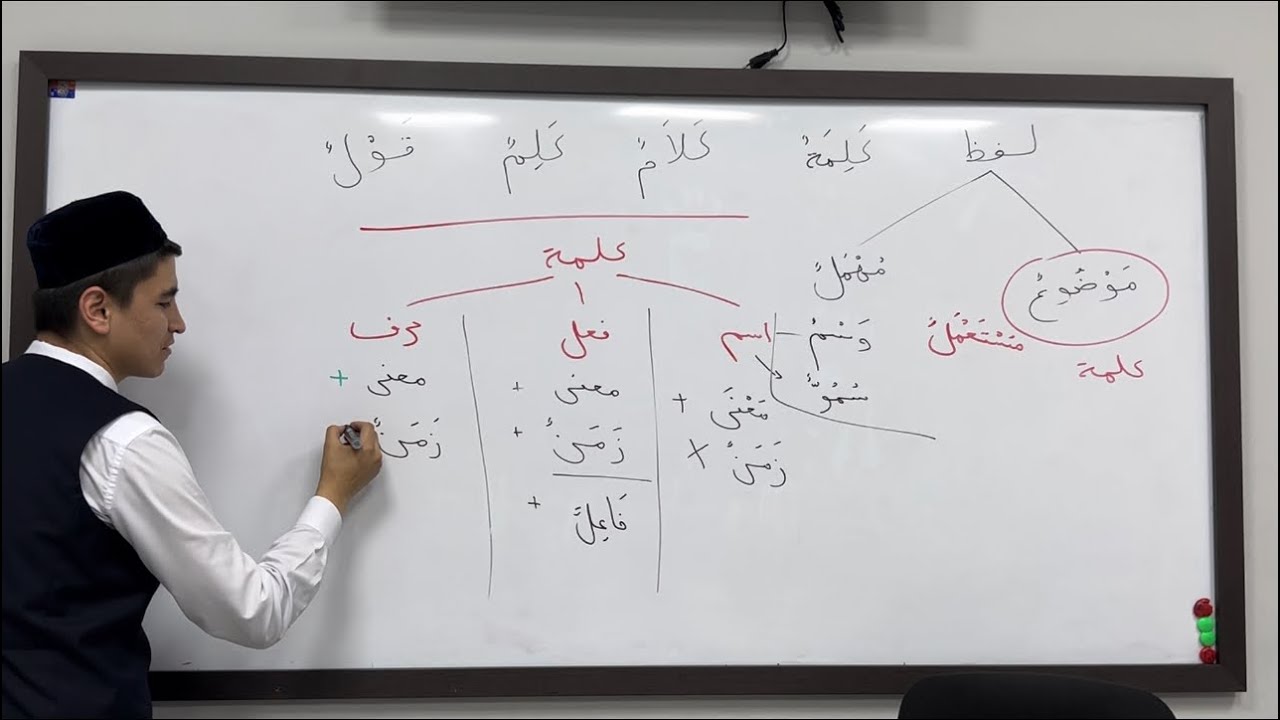 لفظ كَلِمَةٌ كَلَامٌ كَلِمٌ قَوْلٌ
كلمة
مَوْضُوعٌ مُهْمَلٌ
مُسْتَعْمَلٌ
كلمة
اسم فعل حرف
وَسْمٌ
سُمُوٌّ
مَعْنَى + معنى + معنى +
زَمَنٌ X زَمَنٌ + زَمَنٌ
فَاعِلٌ +